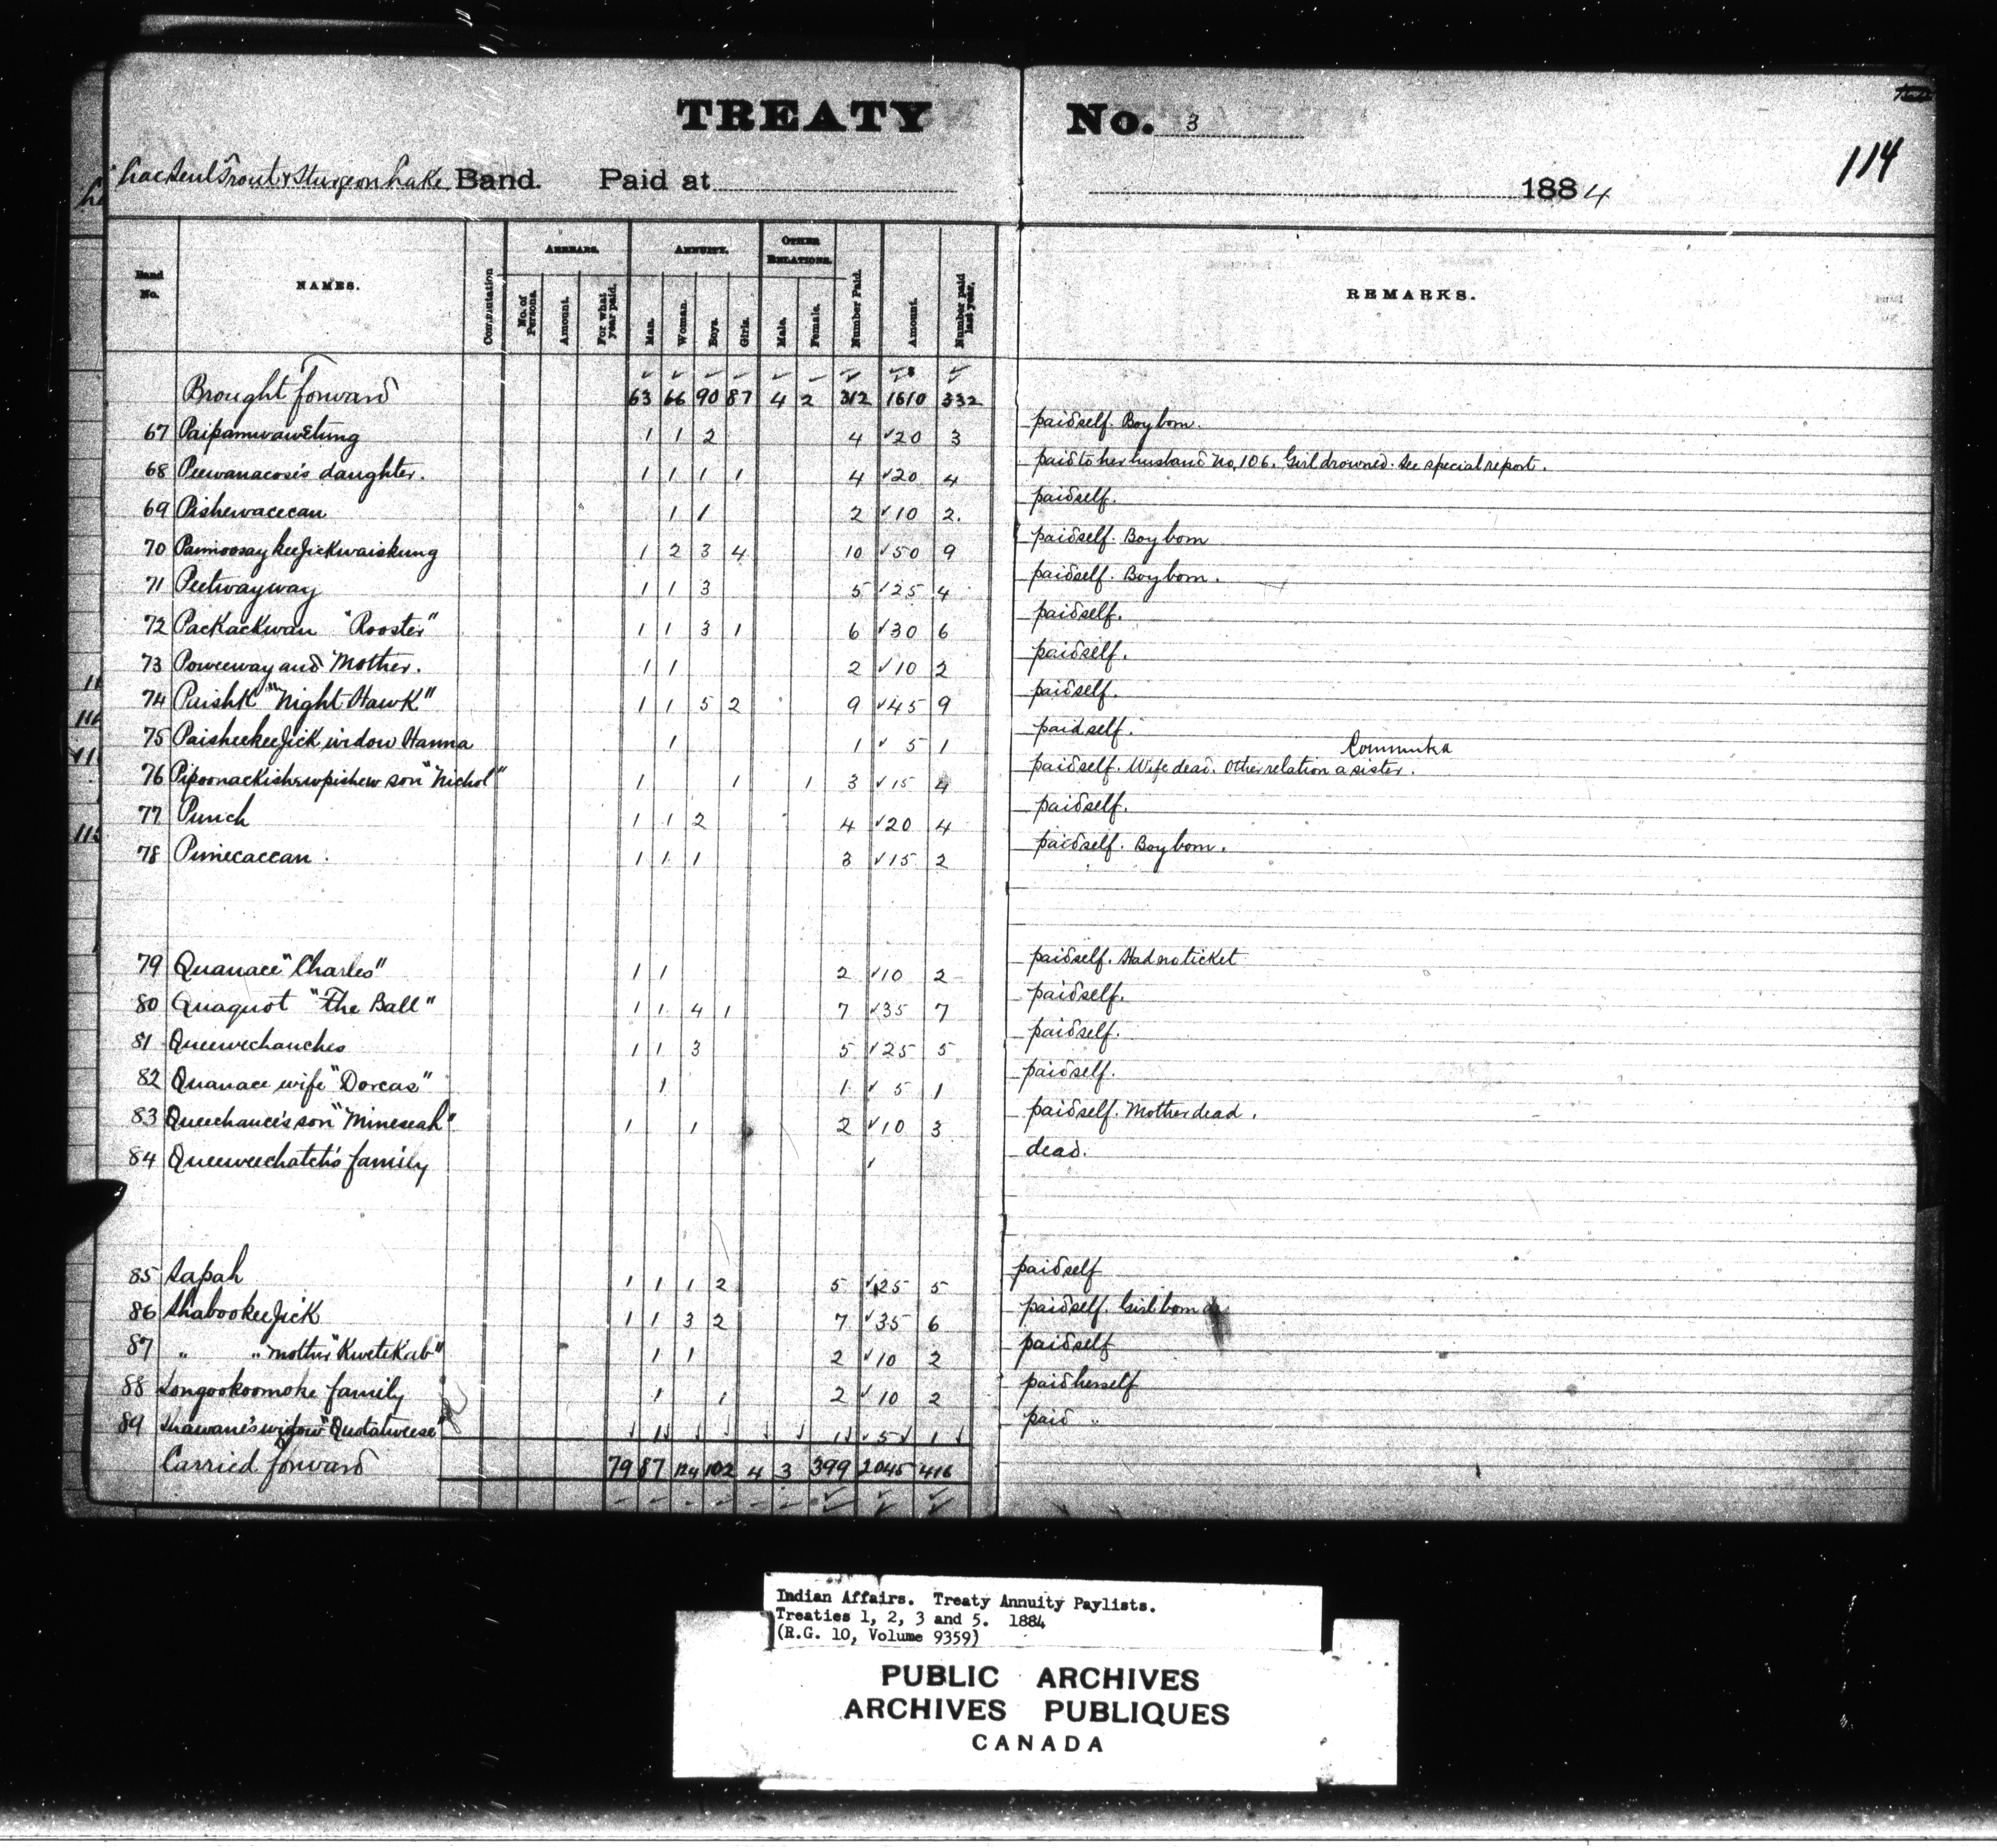 TREATY No. 3
114
Lac Seul Trout & Sturgeon Lake Band. Paid at 1884
Band No. NAMES. Commutation ARREARS. ANNUITY. OTHER RELATIONS. Number Paid. Amount. Number paid last year. REMARKS.
No. of Persons. Amount. For what year paid. Man. Woman. Boys. Girls. Male. Female.
Brought forward 63 66 90 87 4 2 312 1610 332
67 Paipamwawetung 1 1 2 4 20 3 paid self. Boy born.
68 Peewanacose's daughter. 1 1 1 1 4 20 4 paid to her husband No. 106. Girl drowned. See special report.
69 Pishewacecan 1 1 2 10 2. paid self.
70 Pamoosay keeJickwaiskung 1 2 3 4 10 50 9 paid self. Boy born
71 Peetwayway 1 1 3 5 25 4 paid self. Boy born.
72 Packackwan "Rooster" 1 1 3 1 6 30 6 paid self.
73 Poweeway and Mother. 1 1 2 10 2 paid self.
74 Paishk "Night Hawk" 1 1 5 2 9 45 9 paid self.
75 PaisheekeeJick widow Hanna 1 1 5 1 paid self.
76 Pipoonackishewpishew son "Nichol" 1 1 1 3 15 4 paid self. Wife dead. Other relation a sister.
77 Punch 1 1 2 4 20 4 paid self.
78 Pimecaccan. 1 1 1 3 15 2 paid self. Boy born.
79 Quanace "Charles" 1 1 2 10 2 paid self. Had no ticket
80 Quaquot "The Ball" 1 1 4 1 7 35 7 paid self.
81 Queewechanches 1 1 3 5 25 5 paid self.
82 Quanace wife "Dorcas" 1 1 5 1 paid self.
83 Queechance's son "Mineseah" 1 1 2 10 3 paid self. Mother dead.
84 Queeweechatch's family dead.
85 Sapah 1 1 1 2 5 25 5 paid self
86 ShabookeeJick 1 1 3 2 7 35 6 paid self. Girl born
87 " " mother "Kwetekab" 1 1 2 10 2 paid self
88 Songookoomoke family 1 1 2 10 2 paid herself
89 Shawane's widow "Quotatweese" 1 1 5 1 paid "
Carried forward 79 87 124 102 4 3 399 2045 416
Indian Affairs. Treaty Annuity Paylists.
Treaties 1, 2, 3 and 5. 1884
(R.G. 10, Volume 9359)
PUBLIC ARCHIVES
ARCHIVES PUBLIQUES
CANADA